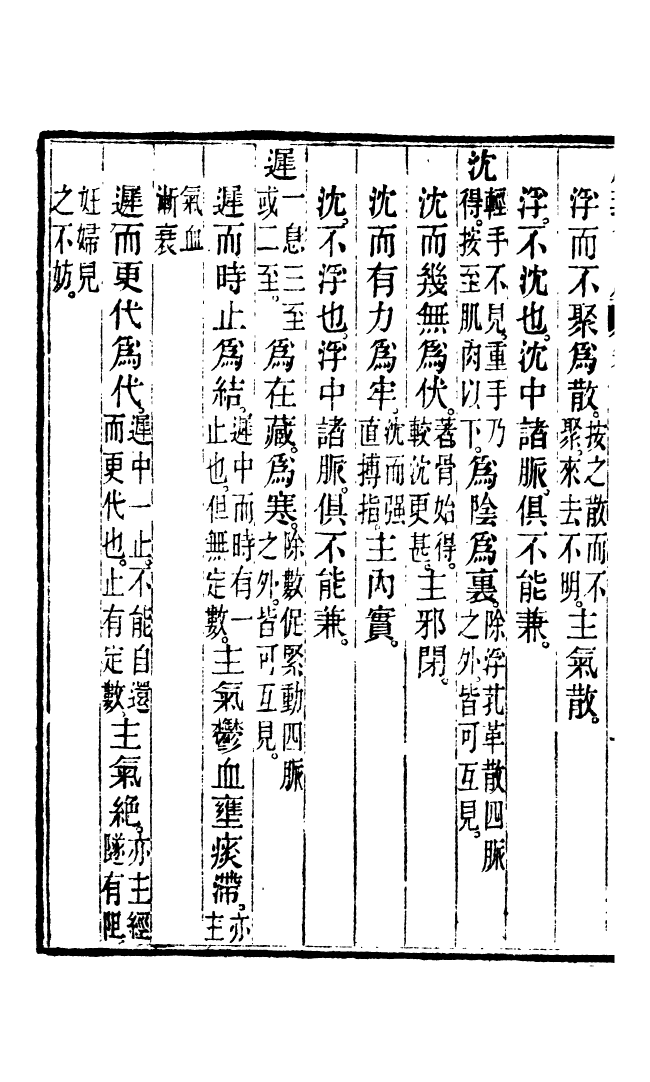 浮而不聚爲散。按之散而不聚。來去不明。主氣散。
浮。不沈也。沈中諸脈。俱不能兼。
沈輕手不見。重手乃得。按至肌肉以下。爲陰爲裏。除浮芤革散四脈之外。皆可互見。
沈而幾無爲伏。著骨始得。較沈更甚。主邪閉。
沈而有力爲牢。沈而强直搏指。主內實。
沈。不浮也。浮中諸脈。俱不能兼。
遲一息三至或二至。爲在藏。爲寒。除數促緊動四脈之外。皆可互見。
遲而時止爲結。遲中而時有一止也。但無定數。主氣鬱血壅痰滯。亦主
氣血漸衰
遲而更代爲代。遲中一止。不能自還而更代也。止有定數。主氣絕。亦主經隧有阻。
妊婦見之不妨。